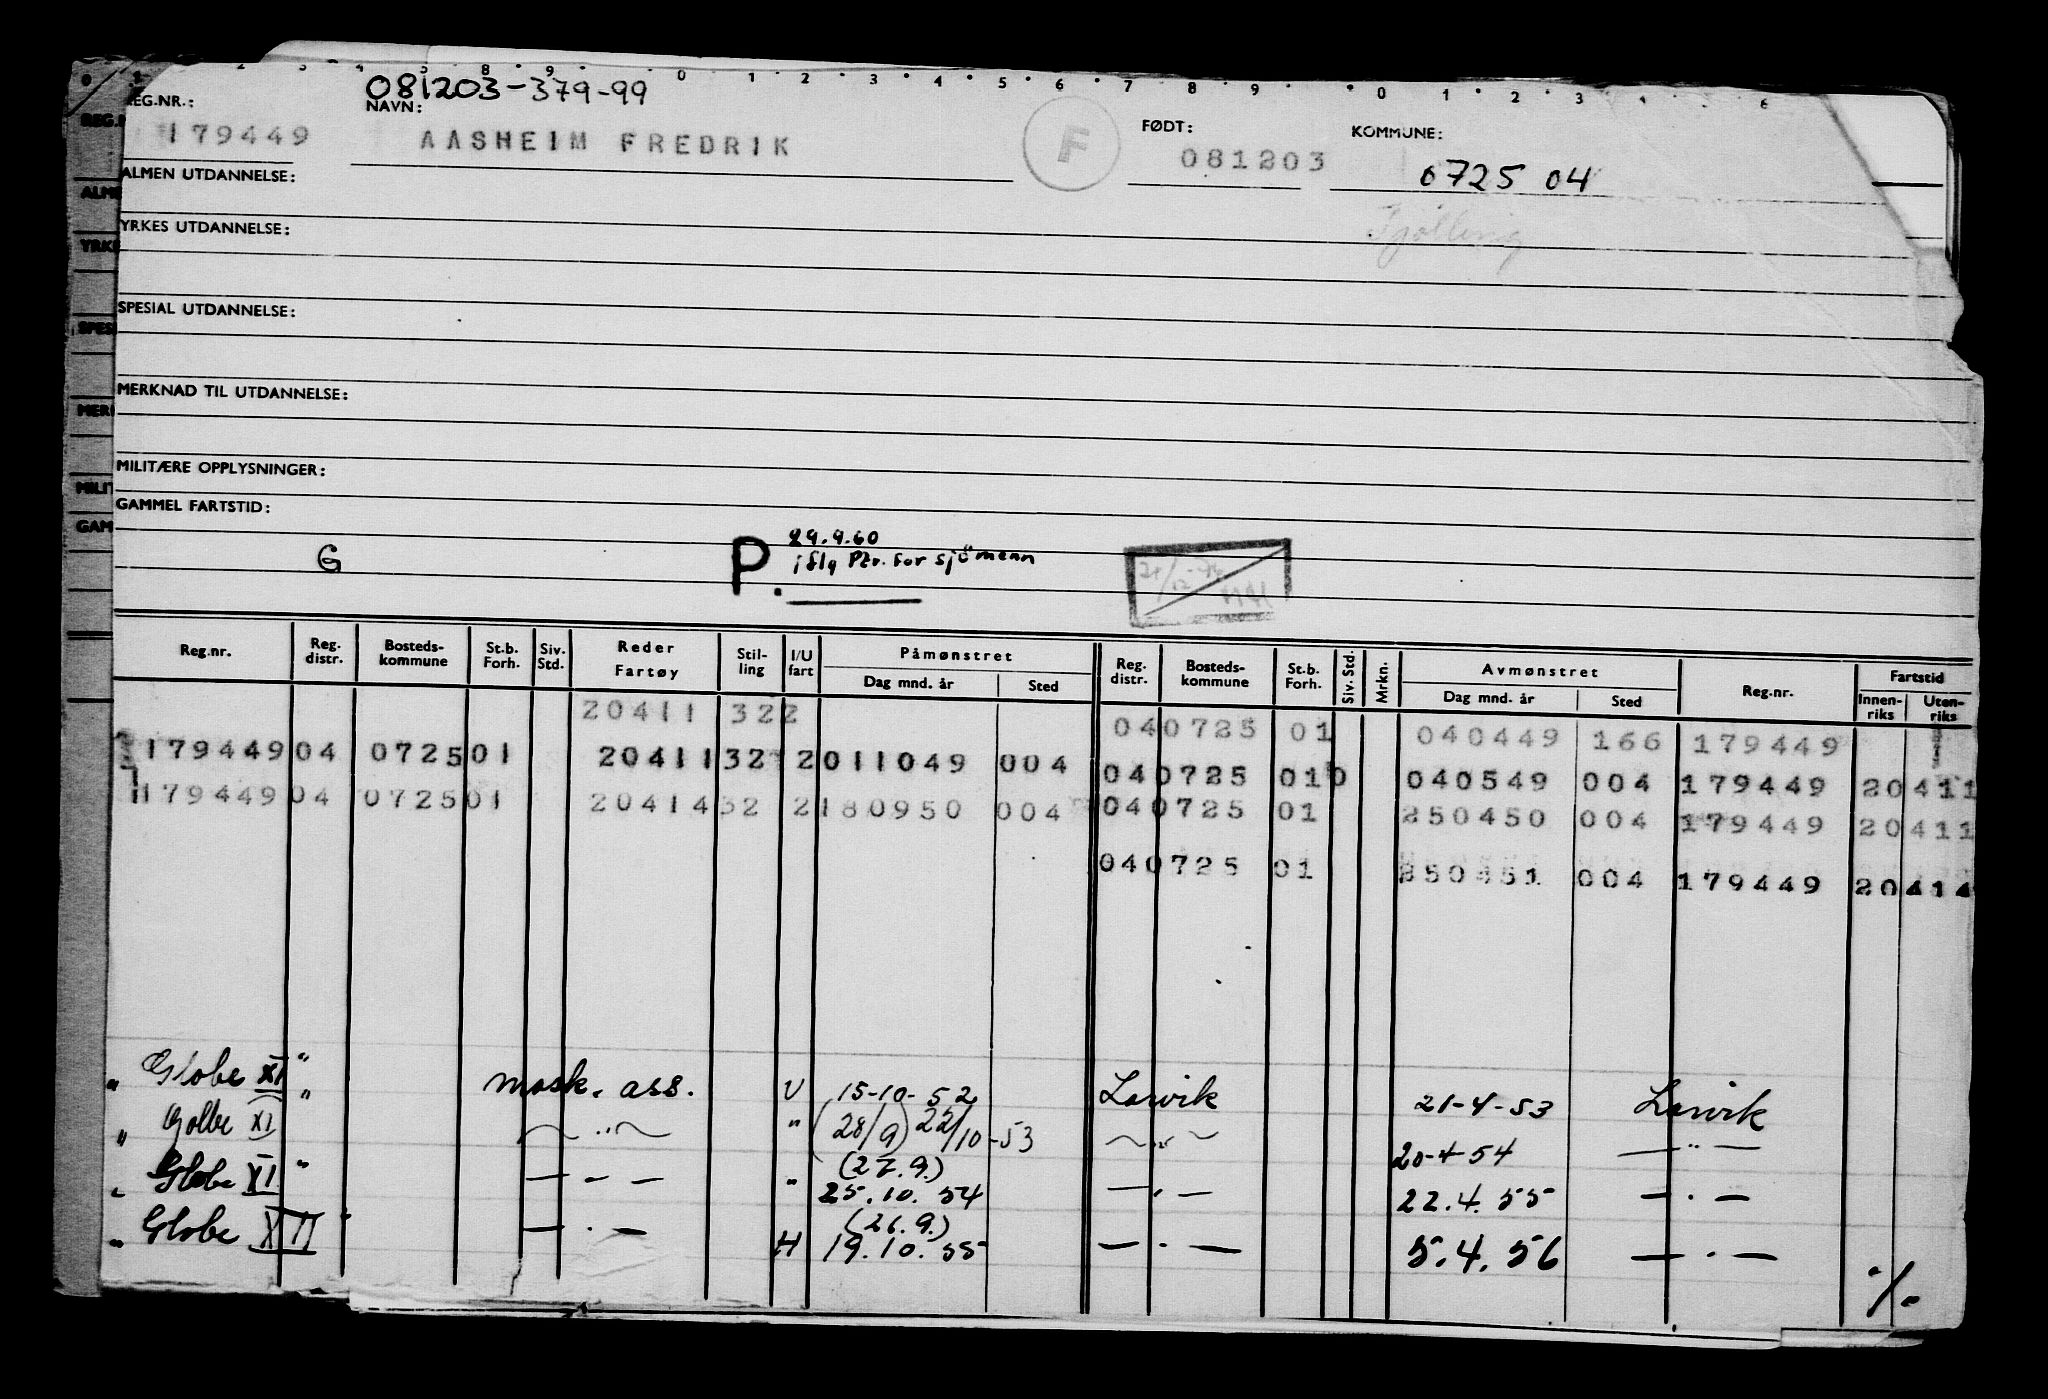 081203-379-99
REG.NR.: NAVN: FØDT: KOMMUNE:
179449 AASHEIM FREDRIK F 081203 0725 04
ALMEN UTDANNELSE:
Tjølling
YRKES UTDANNELSE:
SPESIAL UTDANNELSE:
MERKNAD TIL UTDANNELSE:
MILITÆRE OPPLYSNINGER:
GAMMEL FARTSTID:
G P. 29.9.60
iflg Ptr. for sjömenn
Reg.nr. Reg. distr. Bosteds-kommune St.b. Forh. Siv. Std. Reder Fartøy Stil-ling I/U fart Påmønstret Dag mnd. år Sted Reg. distr. Bosteds-kommune St.b. Forh. Siv. Std. Mrkn. Avmønstret Dag mnd. år Sted Reg.nr. Fartstid Innen-riks Uten-riks
20411 322 040725 01 040449 166 179449
179449 04 0725 01 20411 32 2 011049 004 040725 010 040549 004 179449 20411
179449 04 0725 01 20414 32 2 180950 004 040725 01 250450 004 179449 20411
040725 01 250451 004 179449 20414
" Globe XI " mask. ass. U 15-10-52 Larvik 21-4-53 Larvik
" Golbe XI " — " — " (28/9) 22/10-53 — " — 20-4-54 — " —
" Globe XI " — " — " (27.9.) 25.10.54 — " — 22.4.55 — " —
" Globe XII " — " — H (26.9.) 19.10.55 — " — 5.4.56 — " —